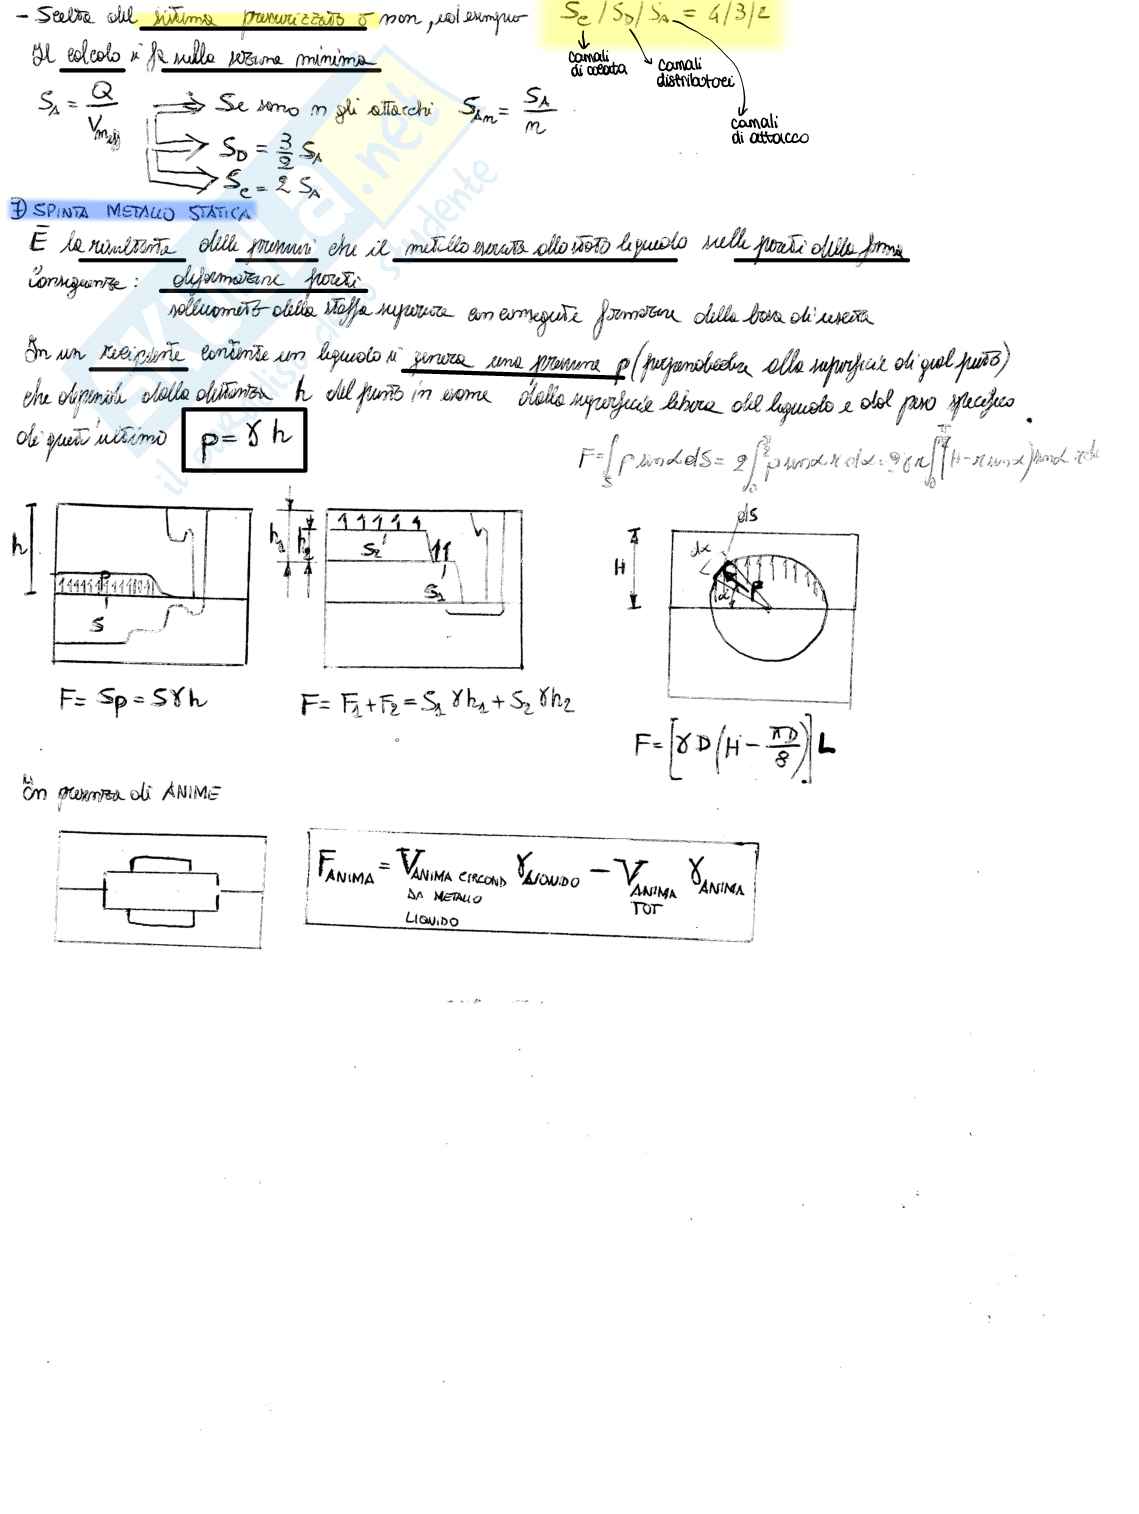 - Scelta del sistema pressurizzato o non, ad esempio Sc / SD / SA = 4/3/2
canali di colata
canali distributori
canali di attacco
Il calcolo si fa sulla sezione minima
SA = Q / Vmeff
Se sono n gli attacchi SAn = SA / n
SD = 3/2 SA
Sc = 2 SA
7) SPINTA METALLO STATICA
È la risultante delle pressioni che il metallo esercita allo stato liquido sulle pareti della forma
Conseguenze: deformazione pareti
sollevamento della staffa superiore con conseguente formazione della bava di uscita
In un recipiente contenente un liquido si genera una pressione p (perpendicolare alla superficie di quel punto)
che dipende dalla distanza h del punto in esame dalla superficie libera del liquido e dal peso specifico
di quest'ultimo p = γ h
F = ∫S p sinα dS = 2 ∫0 p sinα r dα =
h
P
S
h1
h2
S2
S1
dS
dα
H
α
F = Sp = Sγh
F = F1 + F2 = S1 γh1 + S2 γh2
F = [γ D (H - πD/8)] L
In presenza di ANIME
FANIMA = VANIMA CIRCOND DA METALLO LIQUIDO γLIQUIDO - VANIMA TOT γANIMA
SKUOLA.net
il paradiso dello studente